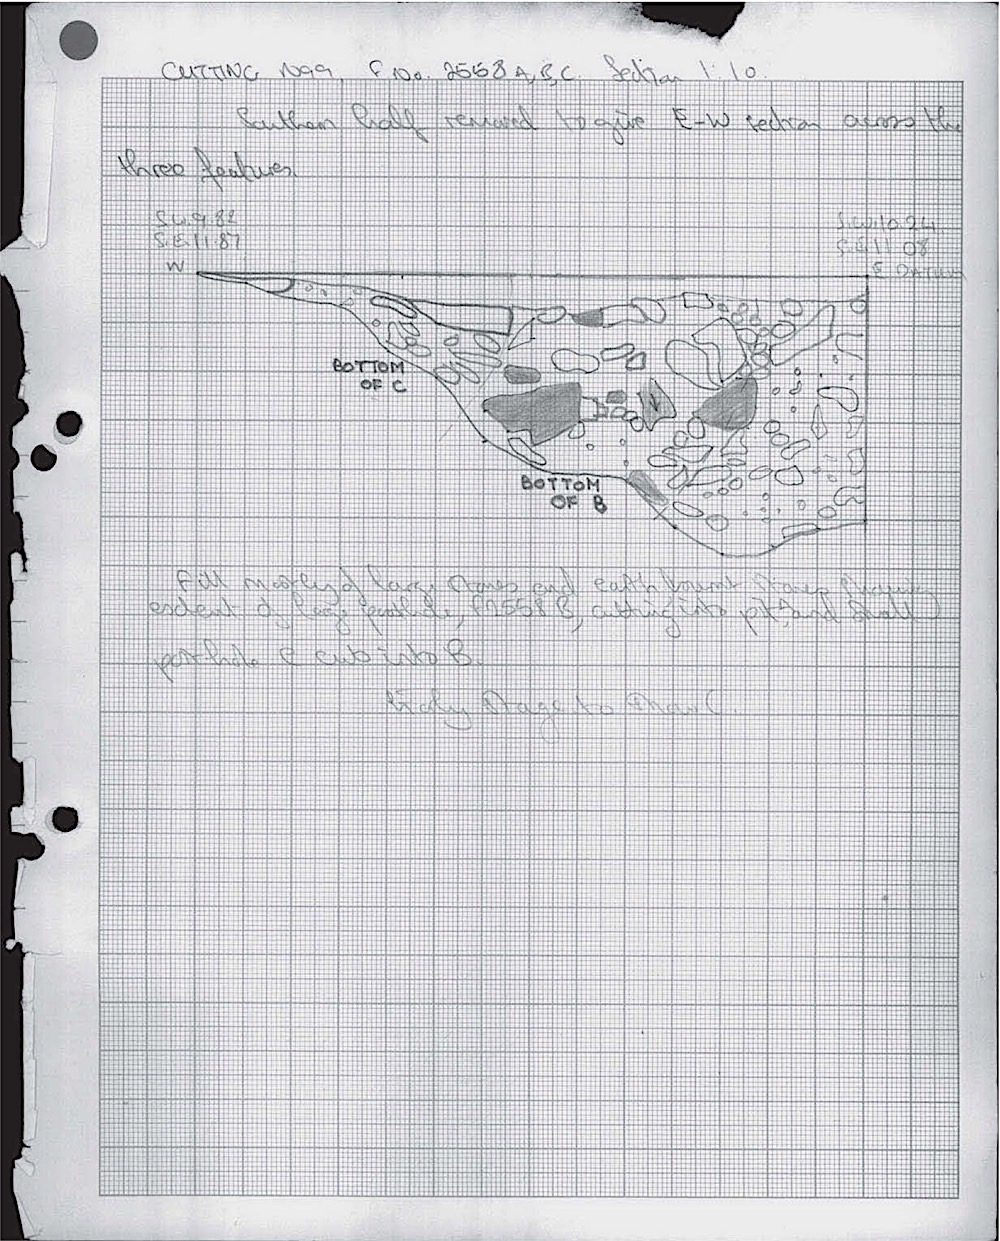 CUTTING N99, F No. 2558 A, B, C. Section 1:10.
Southern half removed to give E-W section across the
three features.
S.W. 9.82
S.E. 11.87
S.W. 10.24
S.E. 11.08
W
E DATUM
BOTTOM
OF C
BOTTOM
OF B
Fill mostly of large stones and earth
extent of large posthole, F2558 B, cutting into pit, and small
posthole C cuts into B.
Stage to Show C.